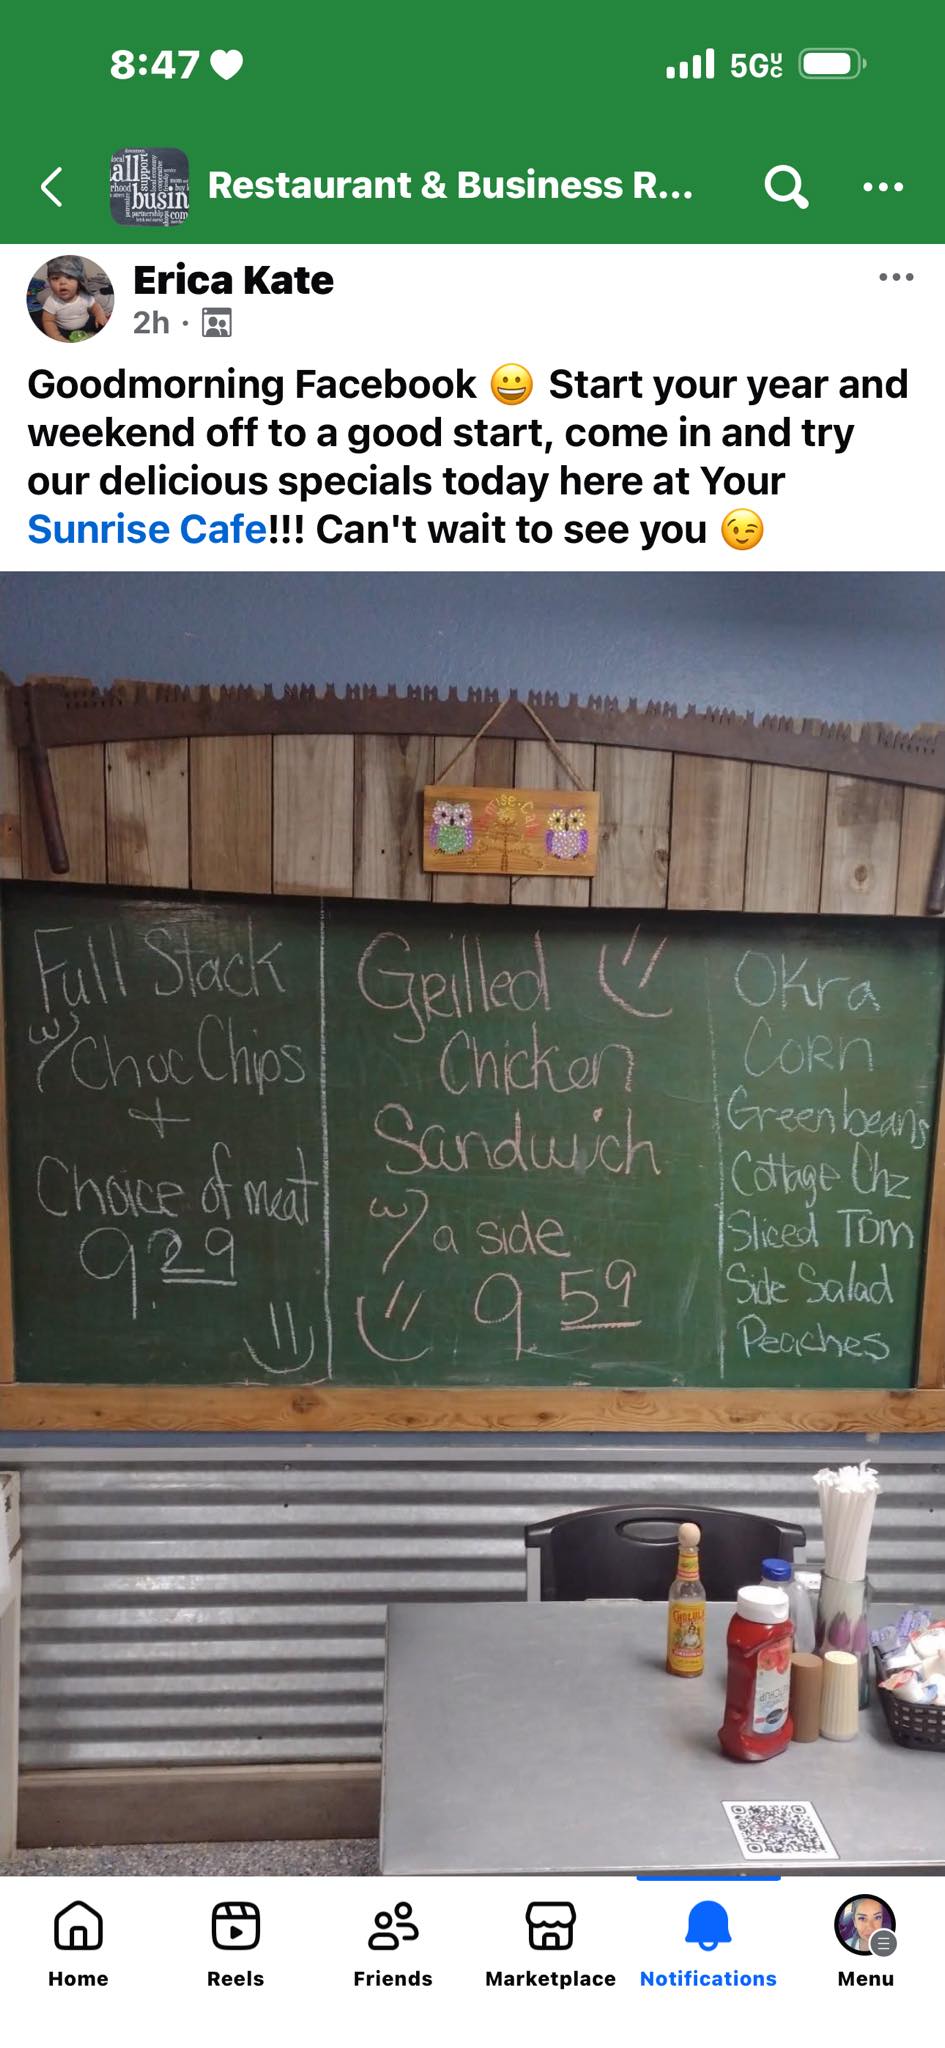 8:47
5G UC
Restaurant & Business R...
Erica Kate
2h ·
Goodmorning Facebook 😀 Start your year and
weekend off to a good start, come in and try
our delicious specials today here at Your
Sunrise Cafe!!! Can't wait to see you 😉
Full Stack
w/ Choc Chips
+
Choice of meat
9.29
Grilled
Chicken
Sandwich
w/ a side
9 59
Okra
Corn
Greenbeans
Cottage Chz
Sliced Tom
Side Salad
Peaches
Home
Reels
Friends
Marketplace
Notifications
Menu